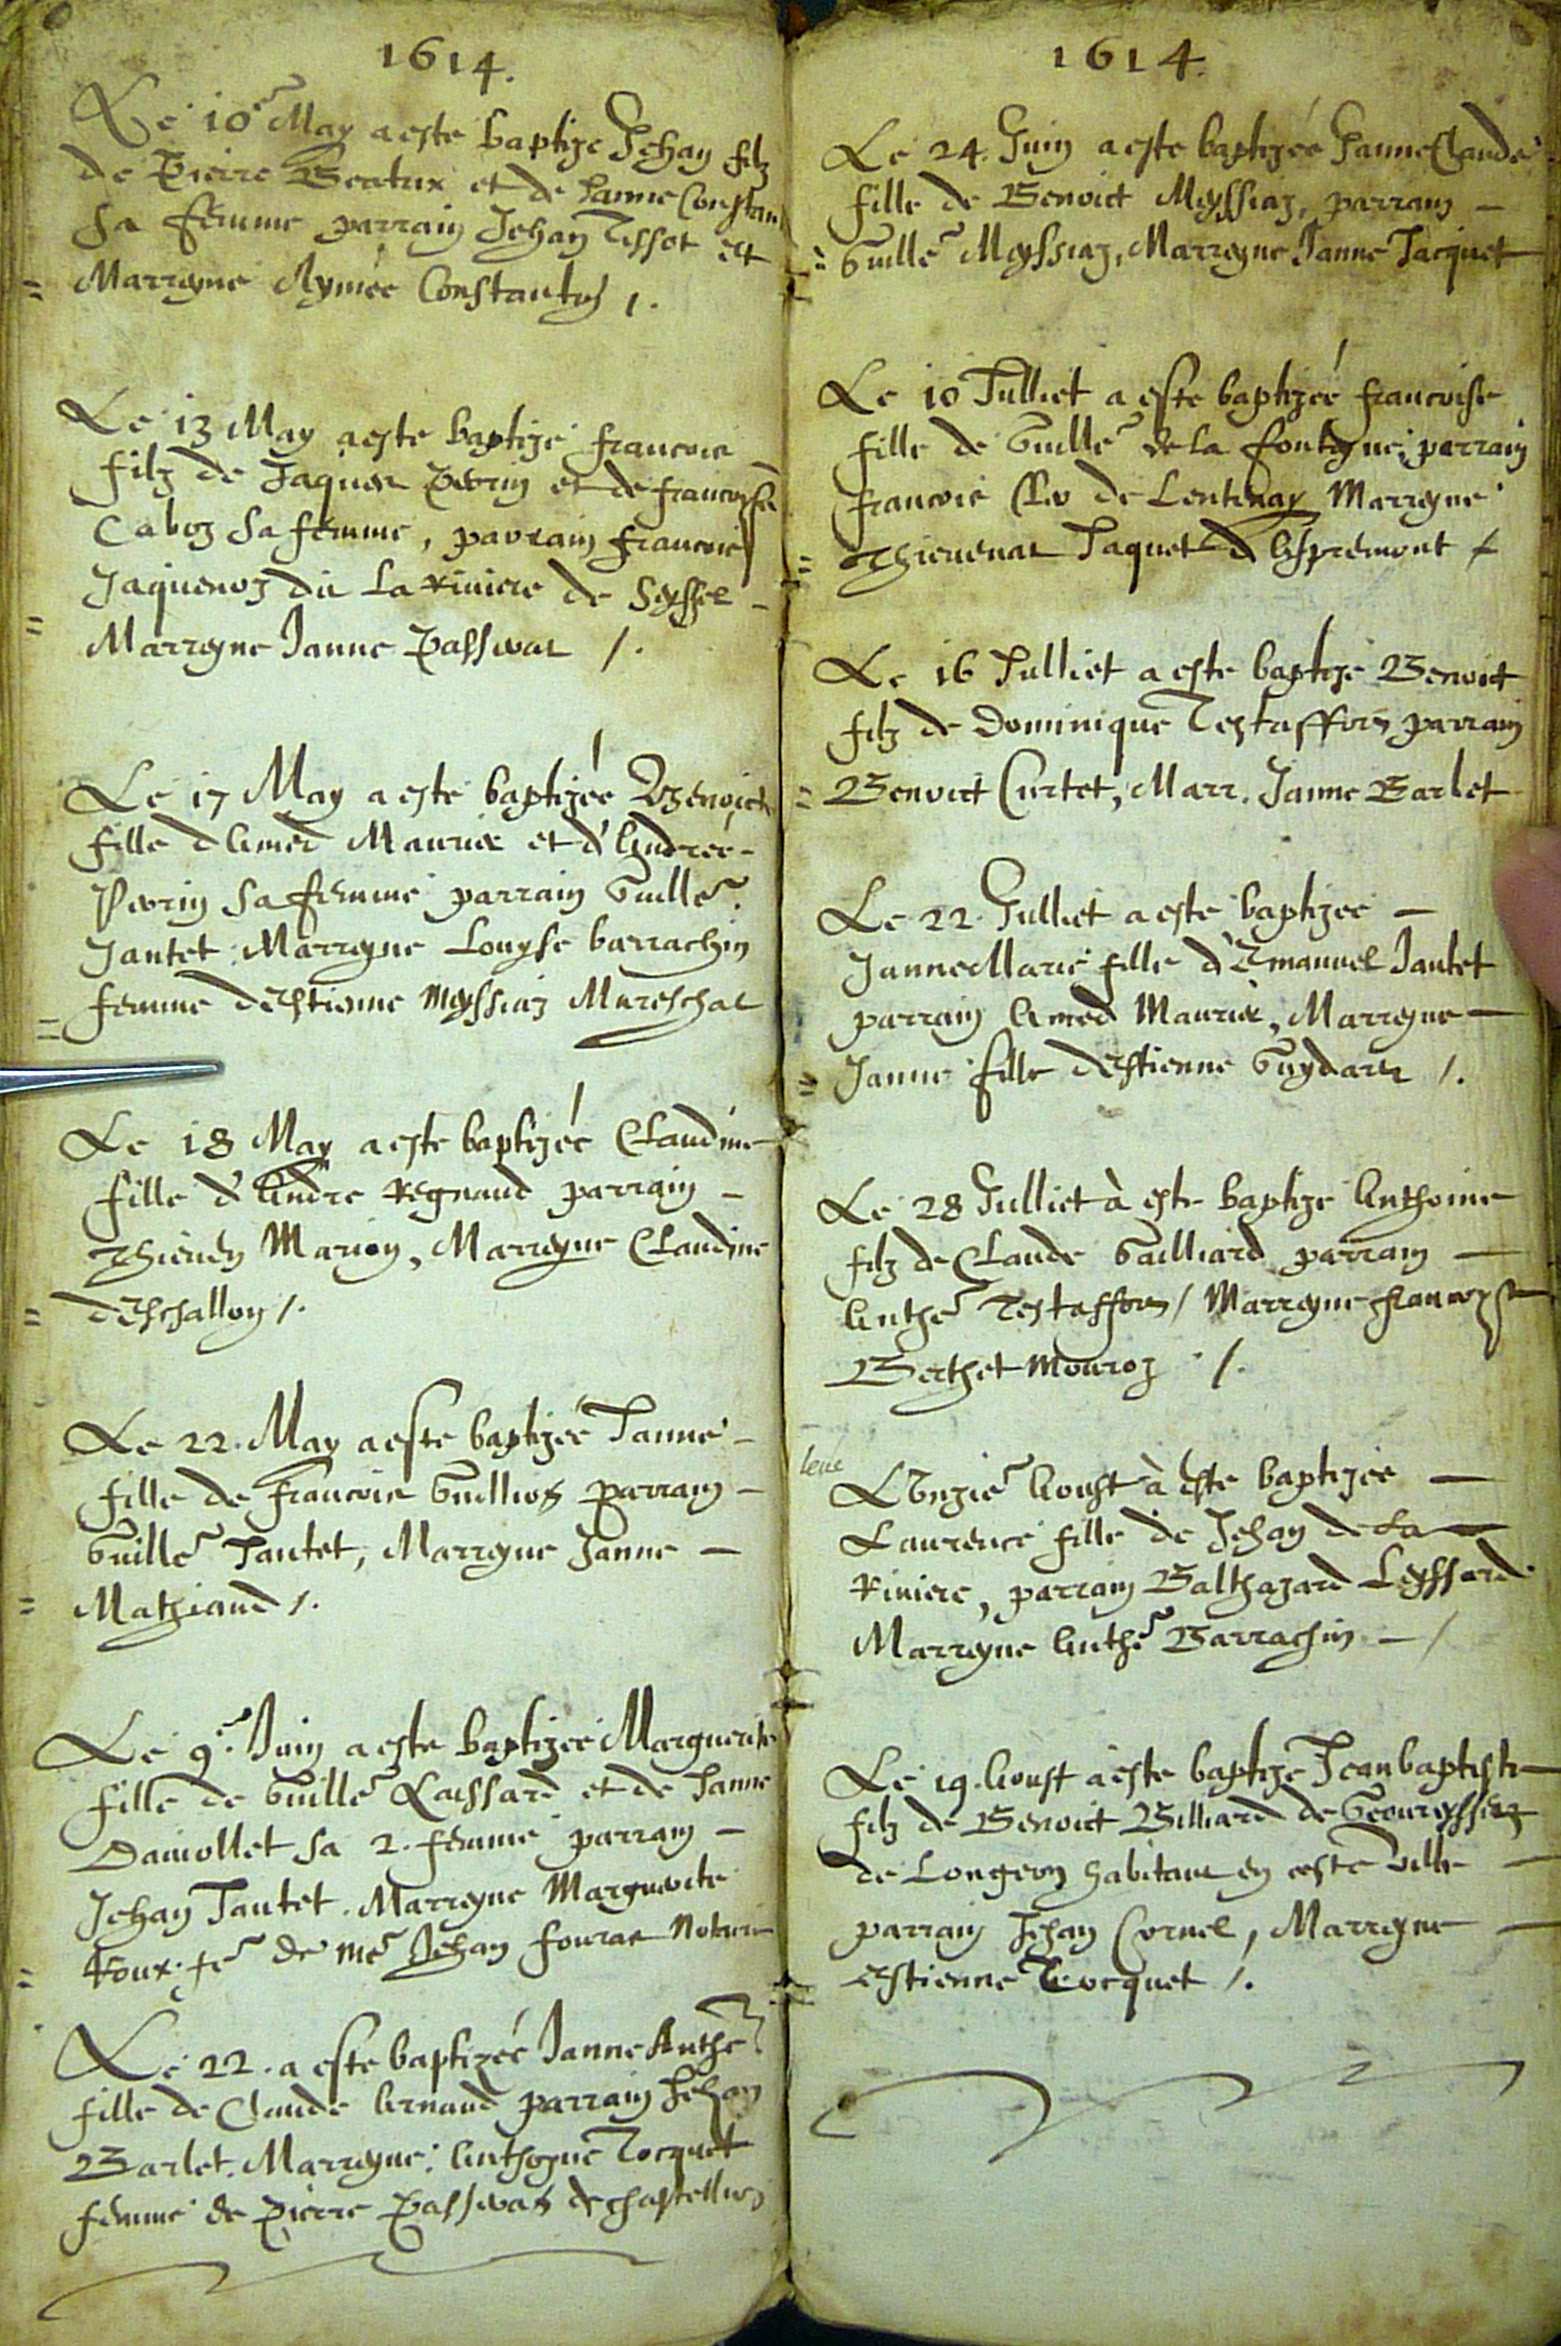 1614.
Le 10e May a este baptize Jehan filz
de Pierre Beatrix et de Janne Constan
sa femme parrain Jehan Tissot et
Marreyne Aymée Constantin /.
Le 13 May a este baptizé francois
filz de Jaques Perrin et de francoyse
Caboz sa femme, parrain francois
Jaquenoz dit La riviere de Seyssel -
Marreyne Janne Passerat /.
Le 17 May a este baptizée Benoicte
fille d'Amed Maurix et d'Andrée -
Perrin sa femme parrain Guille
Jantet. Marreyne Louyse barrachin
femme d'Estienne Meyssiaz Mareschal
Le 18 May a este baptizée Claudine
fille d'Andre Regnaud parrain -
Thieven Marion, Marreyne Claudine
d'Eschallon /.
Le 22. May a este baptizée Janne -
fille de francois Guillion parrain -
Guille Jantet, Marreyne Janne -
Mathiand /.
Le 9e. Juin a este baptizée Marguerite
fille de Guille Laissard et de Janne
Damollet sa 2. femme parrain -
Jehan Jantet. Marreyne Marguerite
Roux fe de me Jehan fourat Notaire
Le 22. a este baptizée Janne Anthe
fille de Claude Arnaud parrain Jehan
Barlet. Marreyne: Anthoyne Tocquet
femme de Pierre Passerat de chastellion
1614.
Le 24. Juin a este baptizée Janne Claude
fille de Benoict Meyssiaz, parrain -
Guille Meyssiaz, Marreyne Janne Jacquet
Le 10 Julliet a este baptizée francoise
fille de Guille de la fonteyne, parrain
francois de Lentenay Marreyne
Thievenat Jaquet d'Aspremont /
Le 16 Julliet a este baptizé Benoict
filz de Dominique Testaffort parrain
Benoict Curtet, Marr. Janne Barlet
Le 22. Julliet a este baptizée -
Janne Marie fille d'Emanuel Jantet
parrain Amed Maurix, Marreyne -
Janne fille d'Estienne Guydard /.
Le 28 Julliet à este baptize Anthoine
filz de Claude Gailliard parrain -
Anthe Testaffort / Marreyne francoyse
Berthet Mouroz /.
L'Onzie Aoust à este baptizée -
Laurence fille de Jehan de La -
Riviere, parrain Balthazard Leyssard
Marreyne Anthe Barrachin - /
Le 19. Aoust a este baptize Jean baptiste
filz de Benoict Billiard de
de Longeon habitant en ceste ville -
parrain Jehan Cornel, Marreyne -
Estienne Tocquet /.